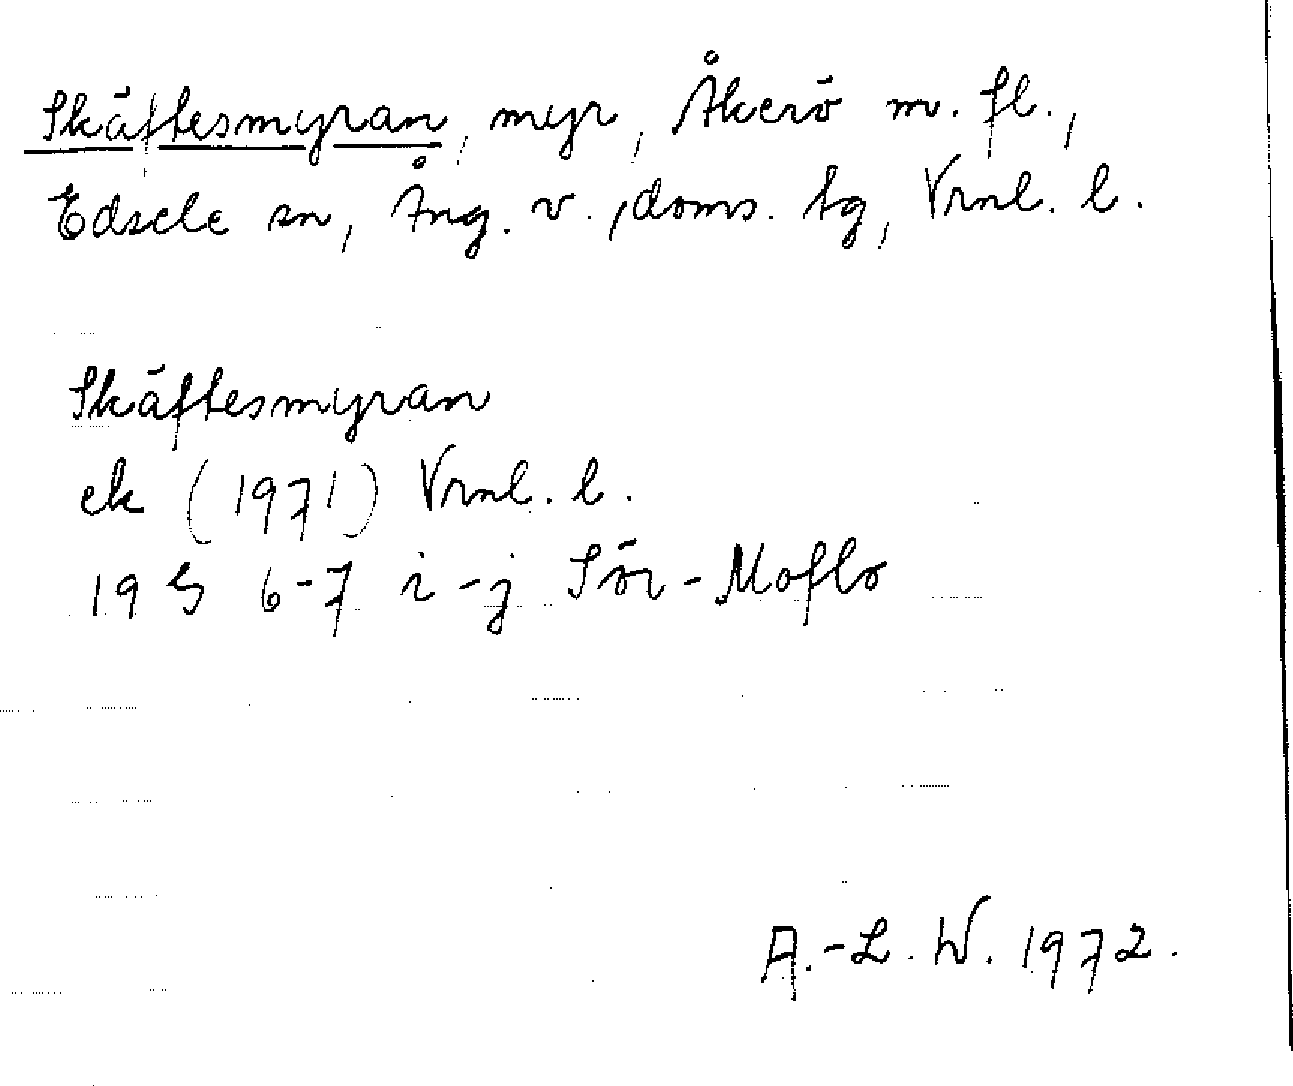 Skäftesmyran, myr, Åkerö m. fl.,
Edsele sn, Ång. v., doms. tg, Vrnl. l.
Skäftesmyran
ek (1971) Vrnl. l.
19 G 6-7 i-j Sör-Moflo
A.-L. W. 1972.